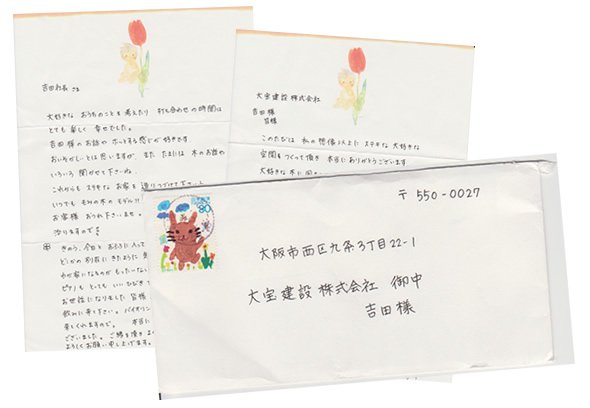 吉田社長 さま
大好きな おうちのことを 考えたり 打ち合わせの時間は
とても 楽しく 幸せでした。
吉田様の お話や ホッとする 感じが 好きです。
おいそがしいとは 思いますが、また たまには 木のお話や
いろいろ 聞かせて 下さいね。
これからも ステキな お家を
いつでも
お客様
泊りますので
きのう、今日と おふろに入って
どこかの 別荘に きたように
わが家になるものが もったいない
ピアノも とっても いい ひびき
お世話になりました 皆様
飲みに来て 下さい。バイオリン
楽しくれますので。 本当に
ございました。ご縁を頂き
よろしくお願い申し上げます。
大宝建設 株式会社
吉田様
皆様
このたびは 私の想像以上に ステキな 大好きな
空間をつくって頂き 本当にありがとうございます
大好きな木に
80
〒550-0027
大阪市西区九条3丁目22-1
大宝建設 株式会社 御中
吉田様